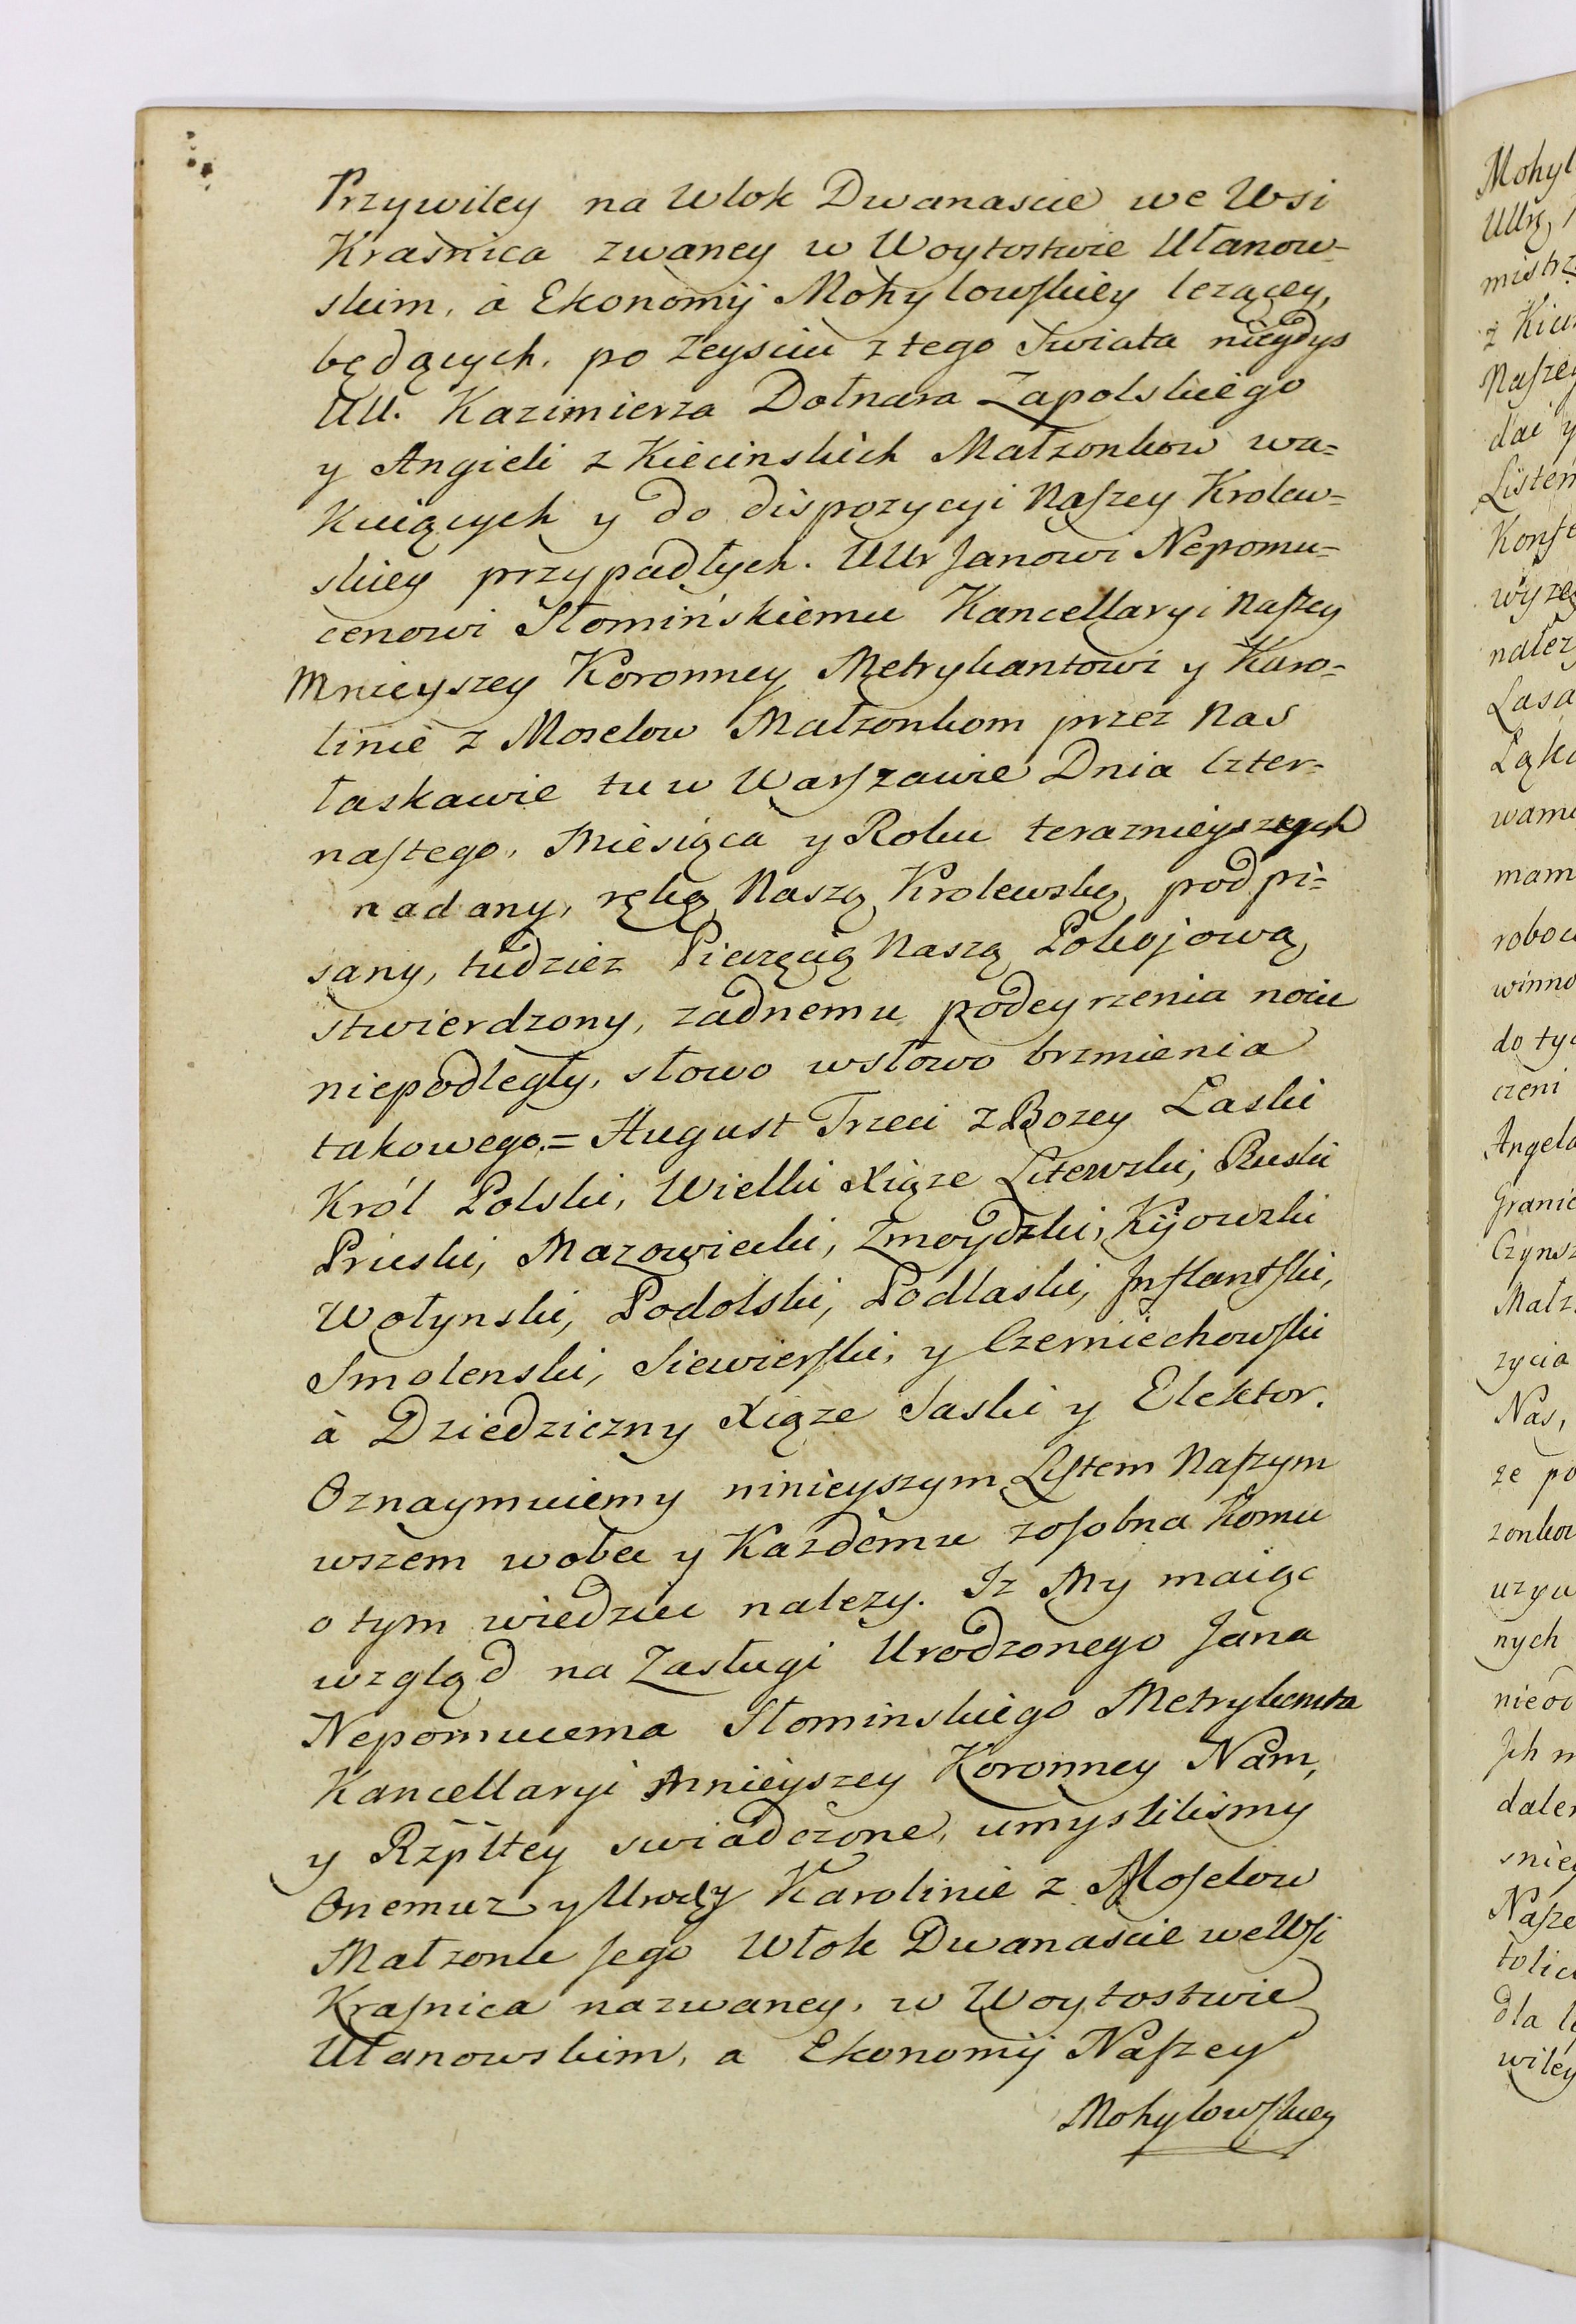 Przywiley na Wlok Dwanascie we Wsi
Kraśnica zwaney w Woytostwie Ułanow-
skim, à Ekonomij Mohylowskiey lezącey,
będących, po zeysciu z tego Swiata niegdys
UU. Kazimierza Dołnara Zapolskiego
y Angieli z Kiecinskich Małzonkow wa=
kuiących y do dispozycyi Naszey Krolew=
skiey przypadłych. UUr Janowi Nepomu=
cenowi Słomińskiemu Kancellaryi Naszey
Mnieyszey Koronney Metrykantowi y Karo-
linie z Moselow Małzonkom przez Nas
łaskawie tu w Warszawie Dnia Czter-
nastego, Miesiąca y Roku teraznieyszych
nadany, ręką Naszą Krolewską podpi=
sany, tudziez Pieczęcią Naszą Pokojową
stwierdzony, zadnemu podeyrzenia
niepodległy, słowo wsłowo brzmienia
takowego.= August Trzeci z Bozey Łaski
Król Polski, Wielki Xiąze Litewski, Ruski
Pruski, Mazowiecki, Zmoydzki, Kijowski
Wołynski, Podolski, Podlaski, Inflantski,
Smolenski, Siewierski, y Czerniechowski
à Dziedziczny Xiąze Saski y Elektor.
Oznaymuiemy ninieyszym Listem Naszym
wszem wobec y Kazdemu zosobna Komu
o tym wiedziec nalezy. Iz My maiąc
wzgląd na Zasługi Urodzonego Jana
Nepomucena Słominskiego Metrykanta
Kancellaryi Mnieyszey Koronney Nam,
y Rzpltey swiadczone, umyslilismy
Onemuz y Urodz Karolinie z Moselow
Małzonce Jego Włok Dwanascie we Wsi
Krasnica nazwaney, w Woytostwie
Ułanowskim, a Ekonomij Naszey
Mohylowskiey